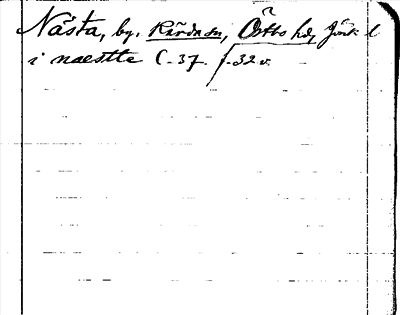 Nästa, by. Kärda sn, Östbo hd, Jönk. l
i naestte C-37. f. 32 v.